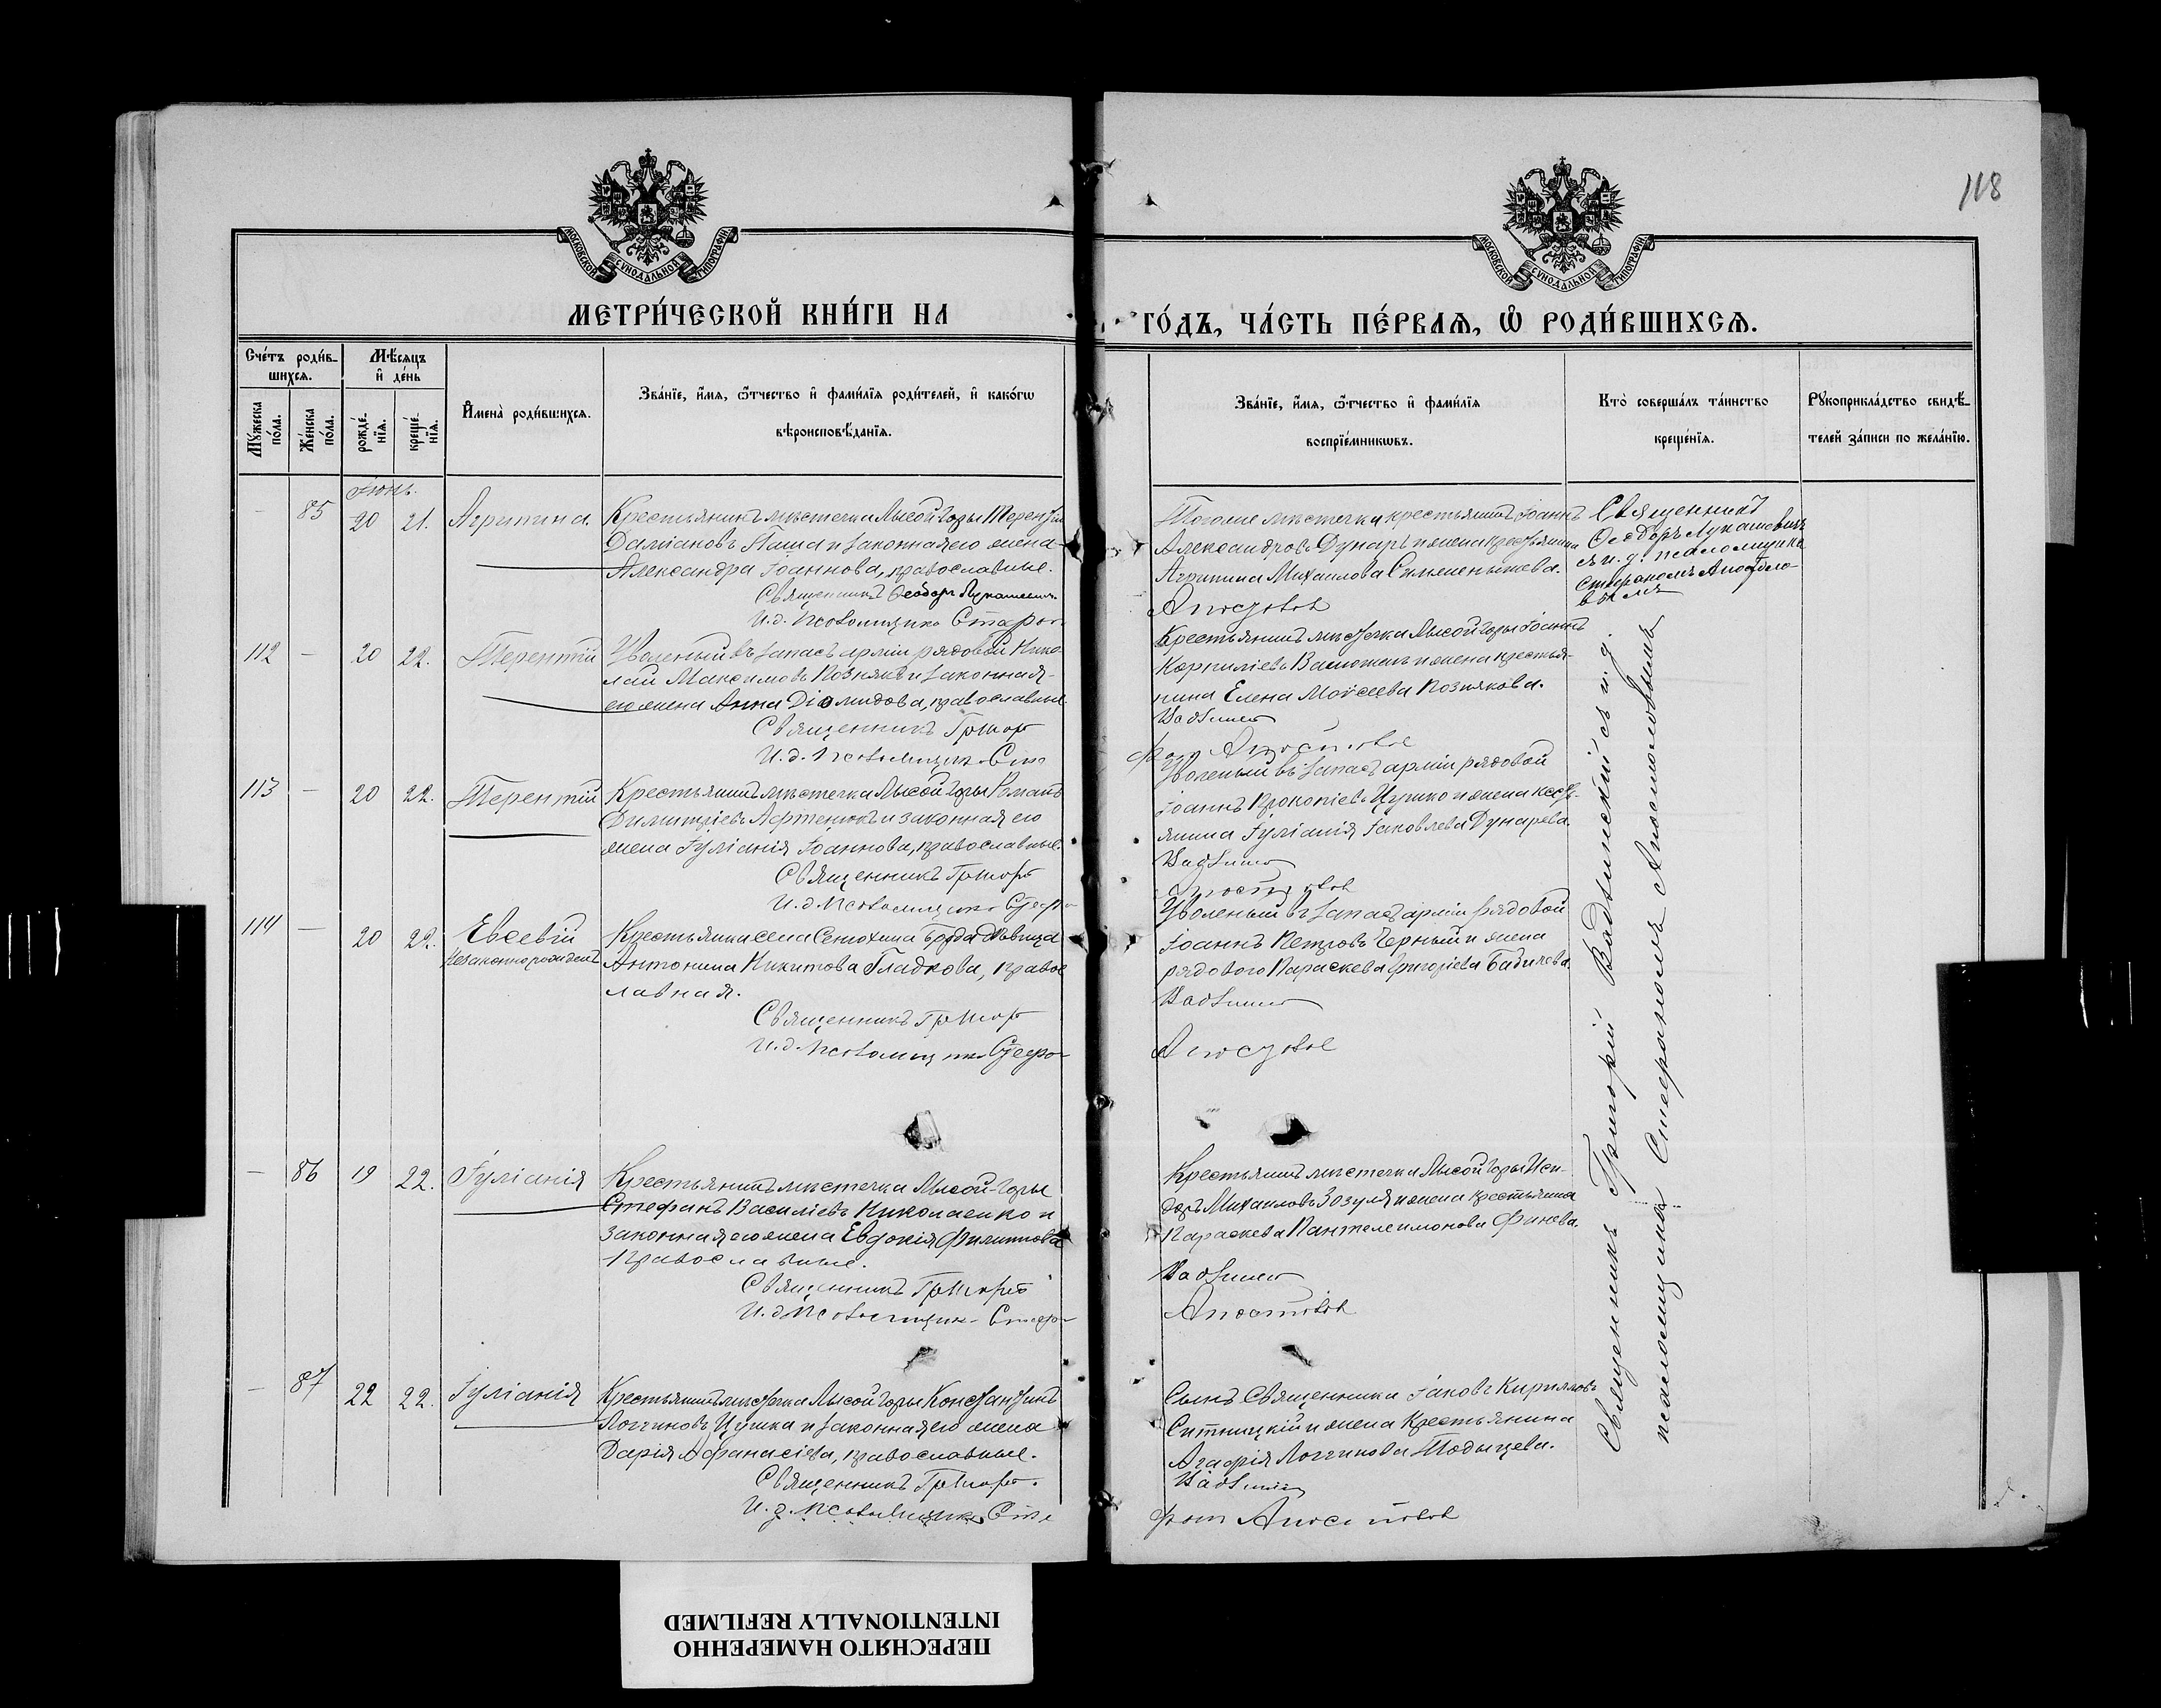 118
МОСКОВСКОЙ СѴНОДАЛЬНОЙ ТИПОГРАФІИ
МОСКОВСКОЙ СѴНОДАЛЬНОЙ ТИПОГРАФІИ
МЕТРИ́ЧЕСКОЙ КНИ́ГИ НА ГО́ДЪ, ЧА́СТЬ ПЕ́РВАЯ, Ѽ РОДИ́ВШИХСЯ.
Сче́тъ роди́в-
шихся.
Мꙋ́жеска по́ла.
Же́нска по́ла.
Мѣ́сяцъ
и҆ де́нь
рожде́-
нїя.
креще́-
нїя.
И҆мена̀ роди́вшихся.
Зва́нїе, и҆́мя, ѻ҆́тчество и҆ фами́лїя роди́телей, и҆ како́гѡ
вѣроисповѣ́данїя.
Зва́нїе, и҆́мя, ѻ҆́тчество и҆ фами́лїя
воспрїе́мникѡвъ.
Кто̀ соверша́лъ та́инство
креще́нїя.
Рꙋкоприкла́дство свидѣ́-
телей за́писи по жела́нїю.
Іюнь.
— 85 20 21. Агрипина
Крестьянинъ мѣстечка Лысой Горы Терентій
Даміановъ Паша и законная его жена
Александра Іоаннова, православные.
Священникъ Ѳеодоръ Лукашевичъ
И. д. Псаломщика
Тогоже мѣстечка крестьянинъ Іоаннъ
Александровъ Дунаръ и жена крестьянина
Агрипина Михаилова
Священникъ
Ѳеодоръ Лукашевичъ
съ и. д. псаломщика
Стефаномъ Апостоло-
вымъ
112 — 20 22. Терентій
Уволеный въ запасъ арміи рядовой Нико-
лай Максимовъ Познякъ и законная
его жена Анна Діомидова, православные.
Священникъ Григор
И. д. Псаломщика Сте
Крестьянинъ мѣстечка Лысой Горы Іоаннъ
Корниліевъ и жена крестья-
нина Елена Моѵсеева Познякова.
113 — 20 22. Терентій
Крестьянинъ мѣстечка Лысой Горы Романъ
Димитріевъ Афтенюкъ и законная его
жена Іуліанія Іоаннова, православные.
Священникъ Григорь
И. д. Псаломщика Стеф
Уволеный въ запасъ арміи рядовой
Іоаннъ Прокопіевъ Цушко и жена кресть-
янина Іуліанія Іаковлева Дунарева.
114 — 20 22. Евсевій
Незаконнорожденъ
Крестьянка села Сенюхина Брода дѣвица
Антонина Никитова Гладкова, правос
лавная.
Священникъ Григор
И. д. Псаломщика Стефа-
Уволеный въ запасъ арміи рядовой
Іоаннъ Петровъ Черный и жена
рядового Параскева Григоріева Бабичева.
— 86 19 22. Іуліанія
Крестьянинъ мѣстечка Лысой-Горы
Стефанъ Василіевъ Николаенко и
законная его жена Евдокія Филиппова
православные.
Священникъ Григорій
И. д. Псаломщика Стефа-
Крестьянинъ мѣстечка Лысой Горы Иси-
доръ Михаиловъ Зозуля и жена крестьянина
Параскева Пантелеимонова Финева.
— 87 22 22. Іуліанія
Крестьянинъ мѣстечка Лысой Горы Константинъ
Логгиновъ Цушка и законная его жена
Дарія Афанасіева, православные.
Священникъ Григорь
И. д. Псаломщика Сте
Сынъ Священника Іаковъ Кирилловъ
Ситницкій и жена крестьянина
Агафія Логгинова
фан Апостолов
Священникъ Григорій Вадзинскій съ и. д.
псаломщика Стефаномъ Апостоловымъ
ПЕРЕСНЯТО НАМЕРЕННО
INTENTIONALLY REFILMED